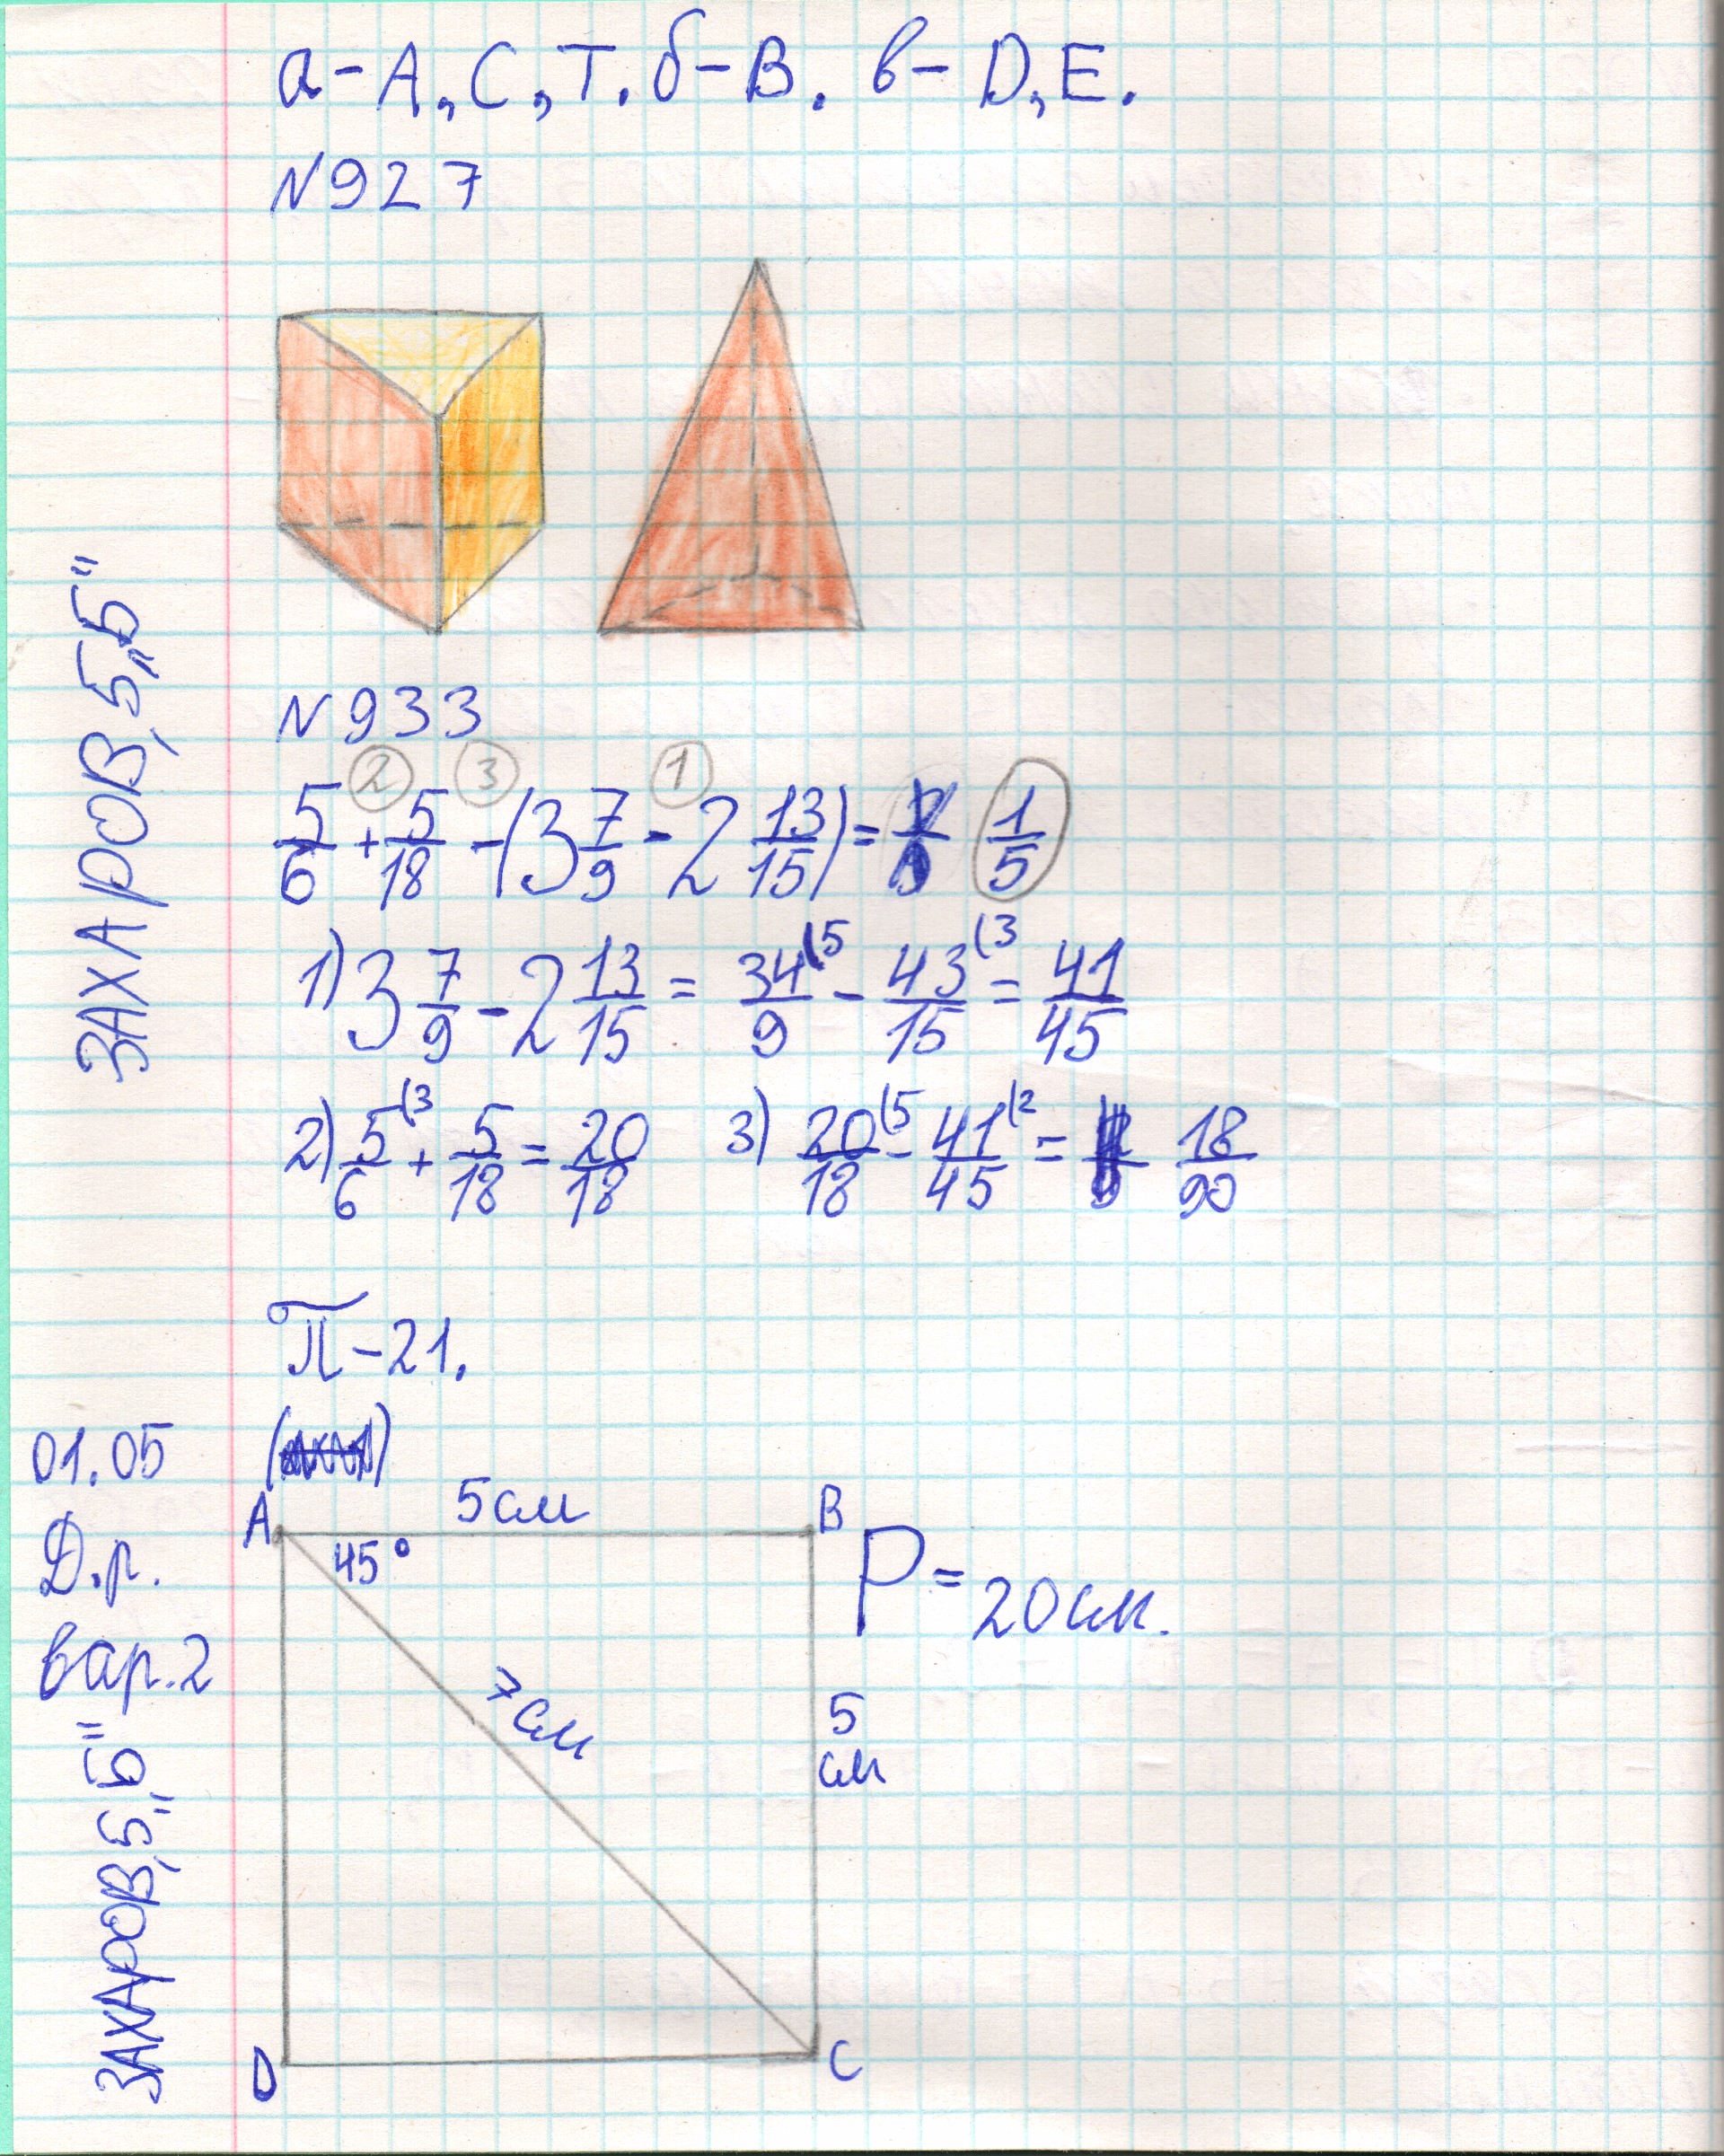 а-А,С,Т. б-В. в-D,E.
N927
ЗАХАРОВ, 5 „Б"
N933
2 3 1
5/6 + 5/18 - (3 7/9 - 2 13/15) = 1/5
1) 3 7/9 - 2 13/15 = 34/9 (5 - 43/15 (3 = 41/45
2) 5/6 (3 + 5/18 = 20/18 3) 20/18 (5 - 41/45 (2 = 18/90
П-21.
01.05
Д.р.
вар.2
ЗАХАРОВ, 5 „Б"
5см
A B
45°
P = 20см.
7см
5
см
D C